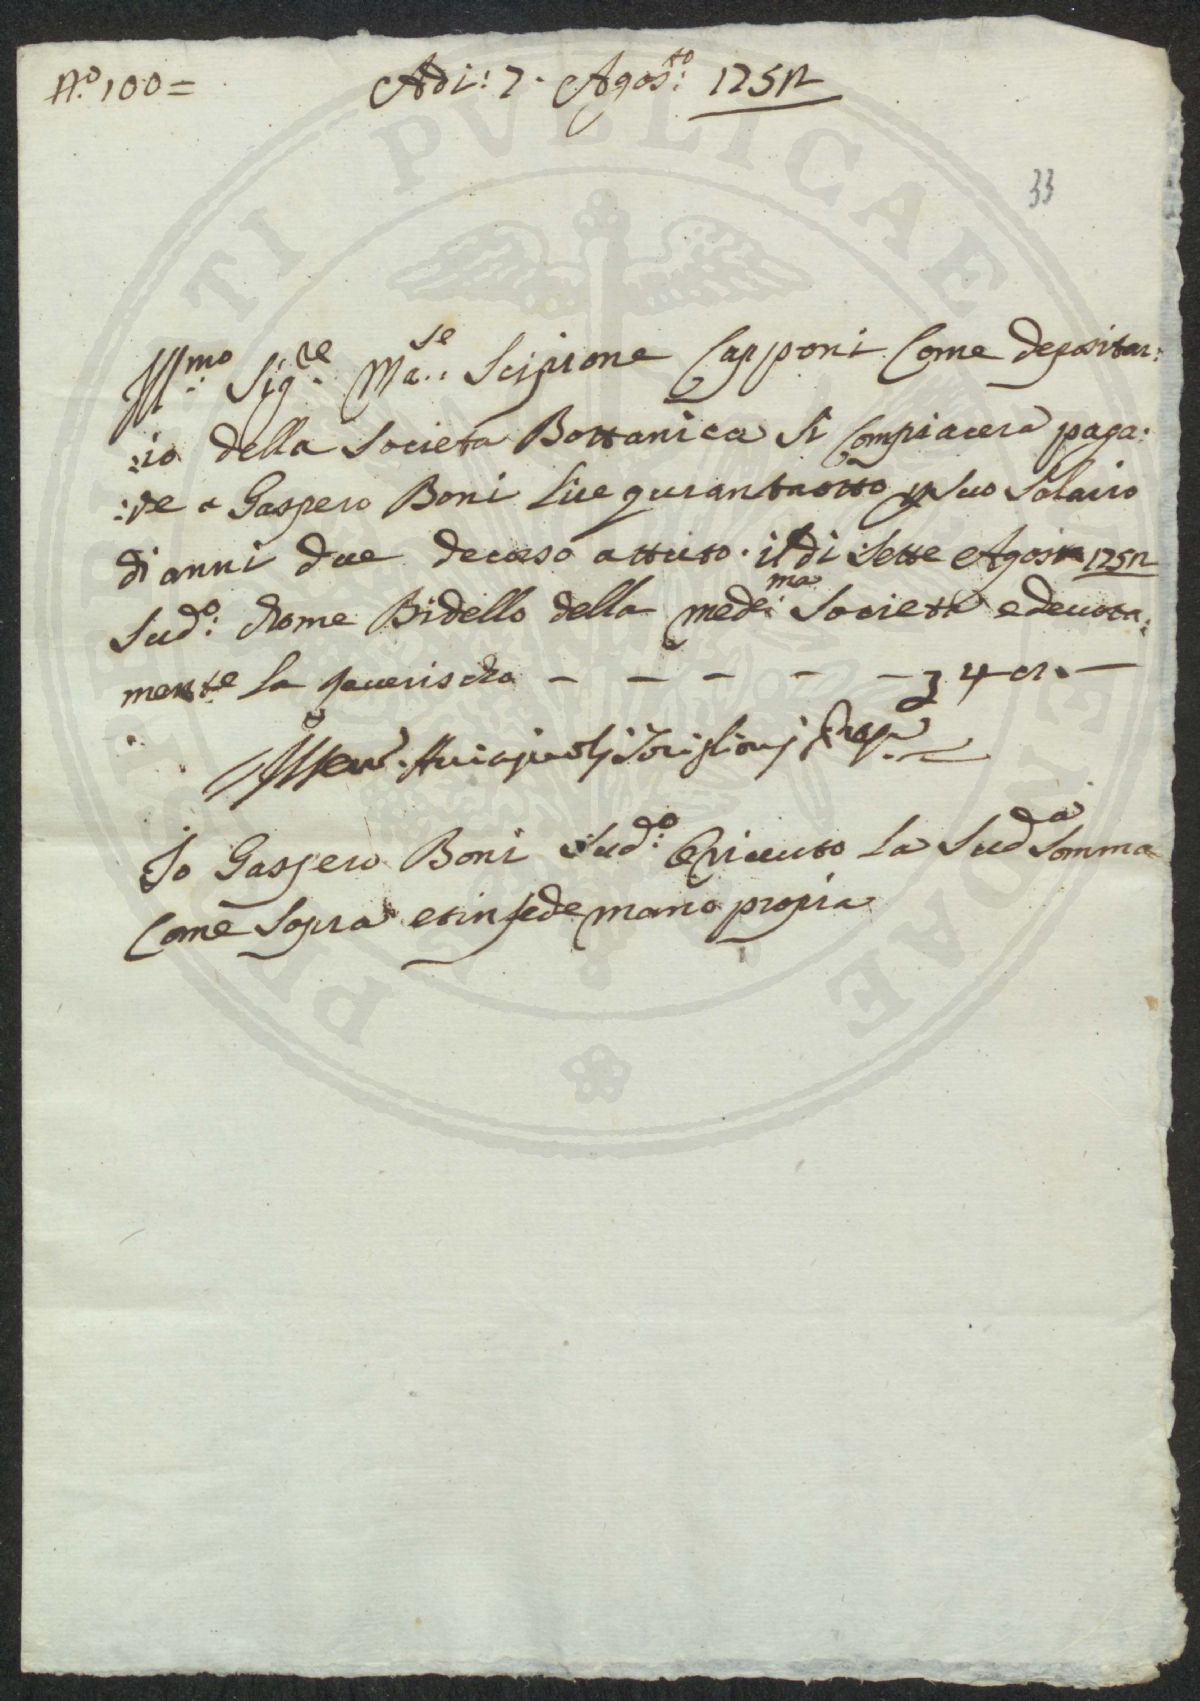 N.o 100 =
Adi: 7. Agos:to 1752
33
Ill:mo Sig:re Ma:se Scipione Capponi Come depositar:
:io della Società Bottanica Si Compiacerà paga:
:re a Gaspero Boni Lire quarantaotto p Suo Salario
di anni due decorso a tutto il di Sette Agosto 1752
Sud:o Come Bidello della med:ma Società e devota:
mente La reverische - - - - - 48. -
Io Gaspero Boni Sud:o ò ricevuto La Sud:a Somma
Come Sopra et in fede mano propria
PVBLICAE